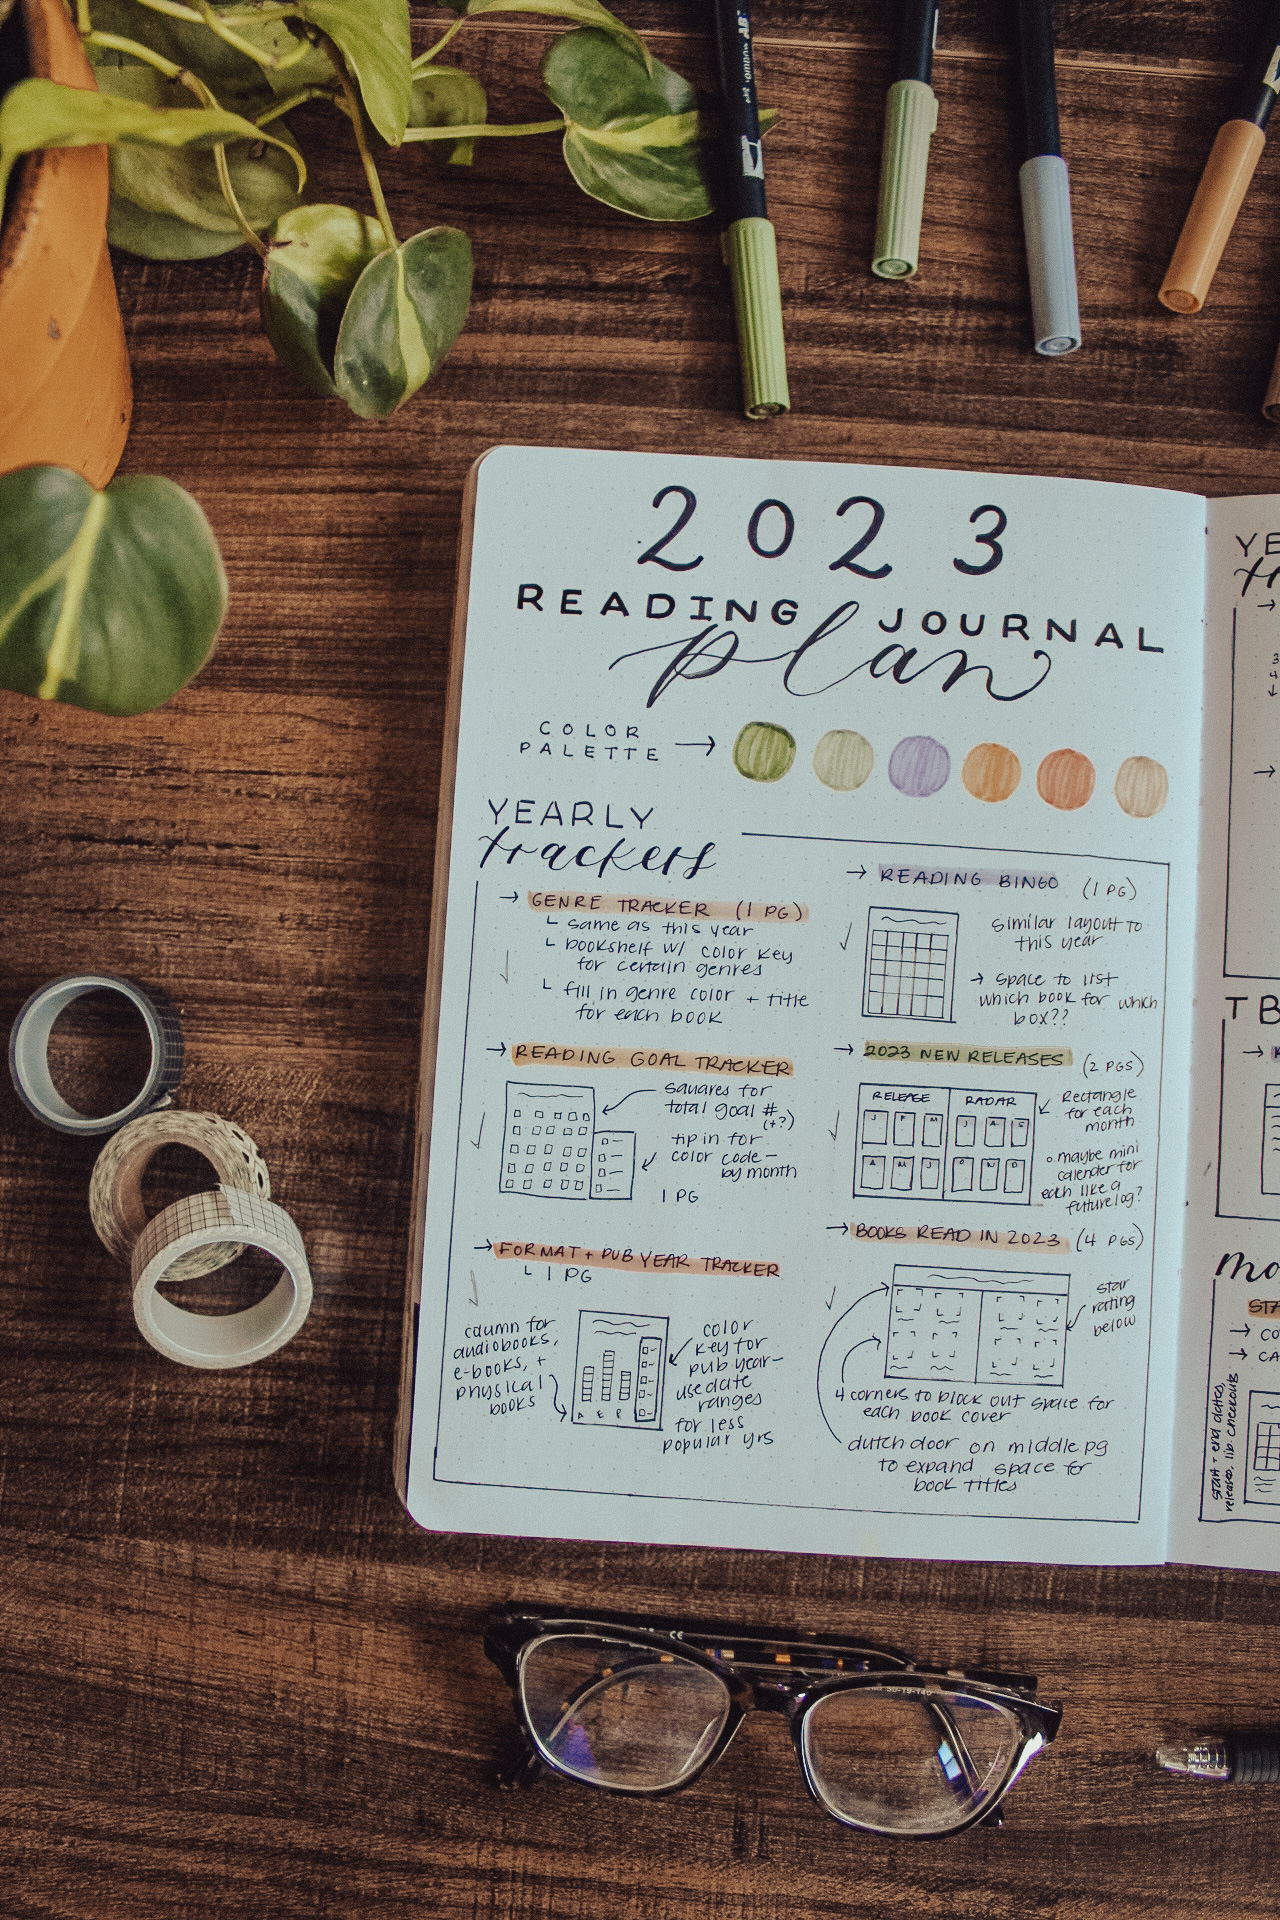 2023
READING JOURNAL
plan
COLOR
PALETTE →
YEARLY
trackers
→ GENRE TRACKER (1 PG)
└ same as this year
└ bookshelf w/ color key
for certain genres
└ fill in genre color + title
for each book
→ READING GOAL TRACKER
squares for
total goal #
(+?)
tip in for
color code—
by month
1 PG
→ FORMAT + PUB YEAR TRACKER
└ 1 PG
column for
audiobooks,
e-books, +
physical
books
A E P
color
key for
pub year—
use date
ranges
for less
popular yrs
→ READING BINGO (1 PG)
similar layout to
this year
→ space to list
which book for which
box??
→ 2023 NEW RELEASES (2 PGS)
RELEASE RADAR
J F M J A S
A M J O N D
Rectangle
for each
month
o maybe mini
calender for
each like a
future log?
→ BOOKS READ IN 2023 (4 PGS)
star
rating
below
4 corners to block out space for
each book cover
dutch door on middle pg
to expand space for
book titles
YE
tr
→
3
4
↓
→
TB
→
mo
STA
→ CO
→ CA
start + end dates,
releases, lib. checkouts
CE
50-19-140